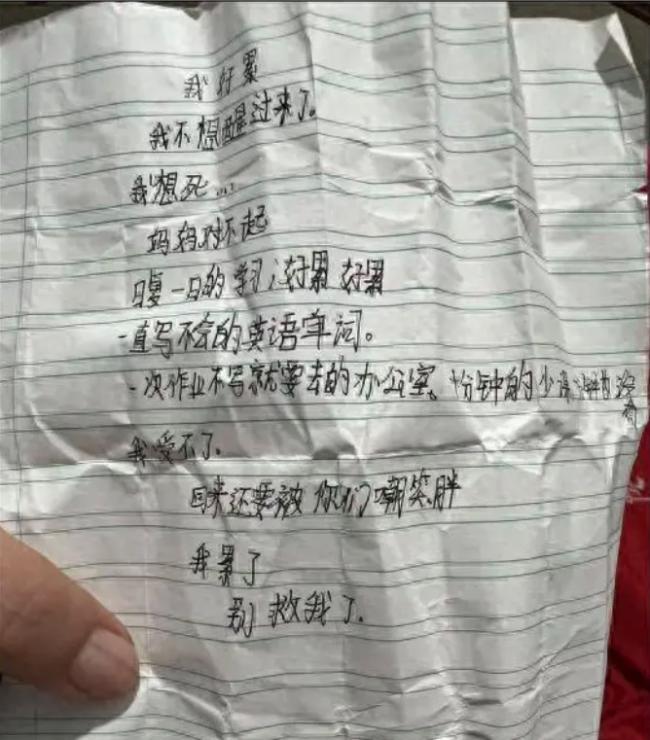 我好累
我不想醒过来了。
我想死...
妈妈对不起
日复一日的学习,好累 好累
一直写不会的英语单词。
一次作业不写就要去的办公室。十分钟的少
没有
我受不了.
回来还要被你们嘲笑胖
我累了
别救我了.